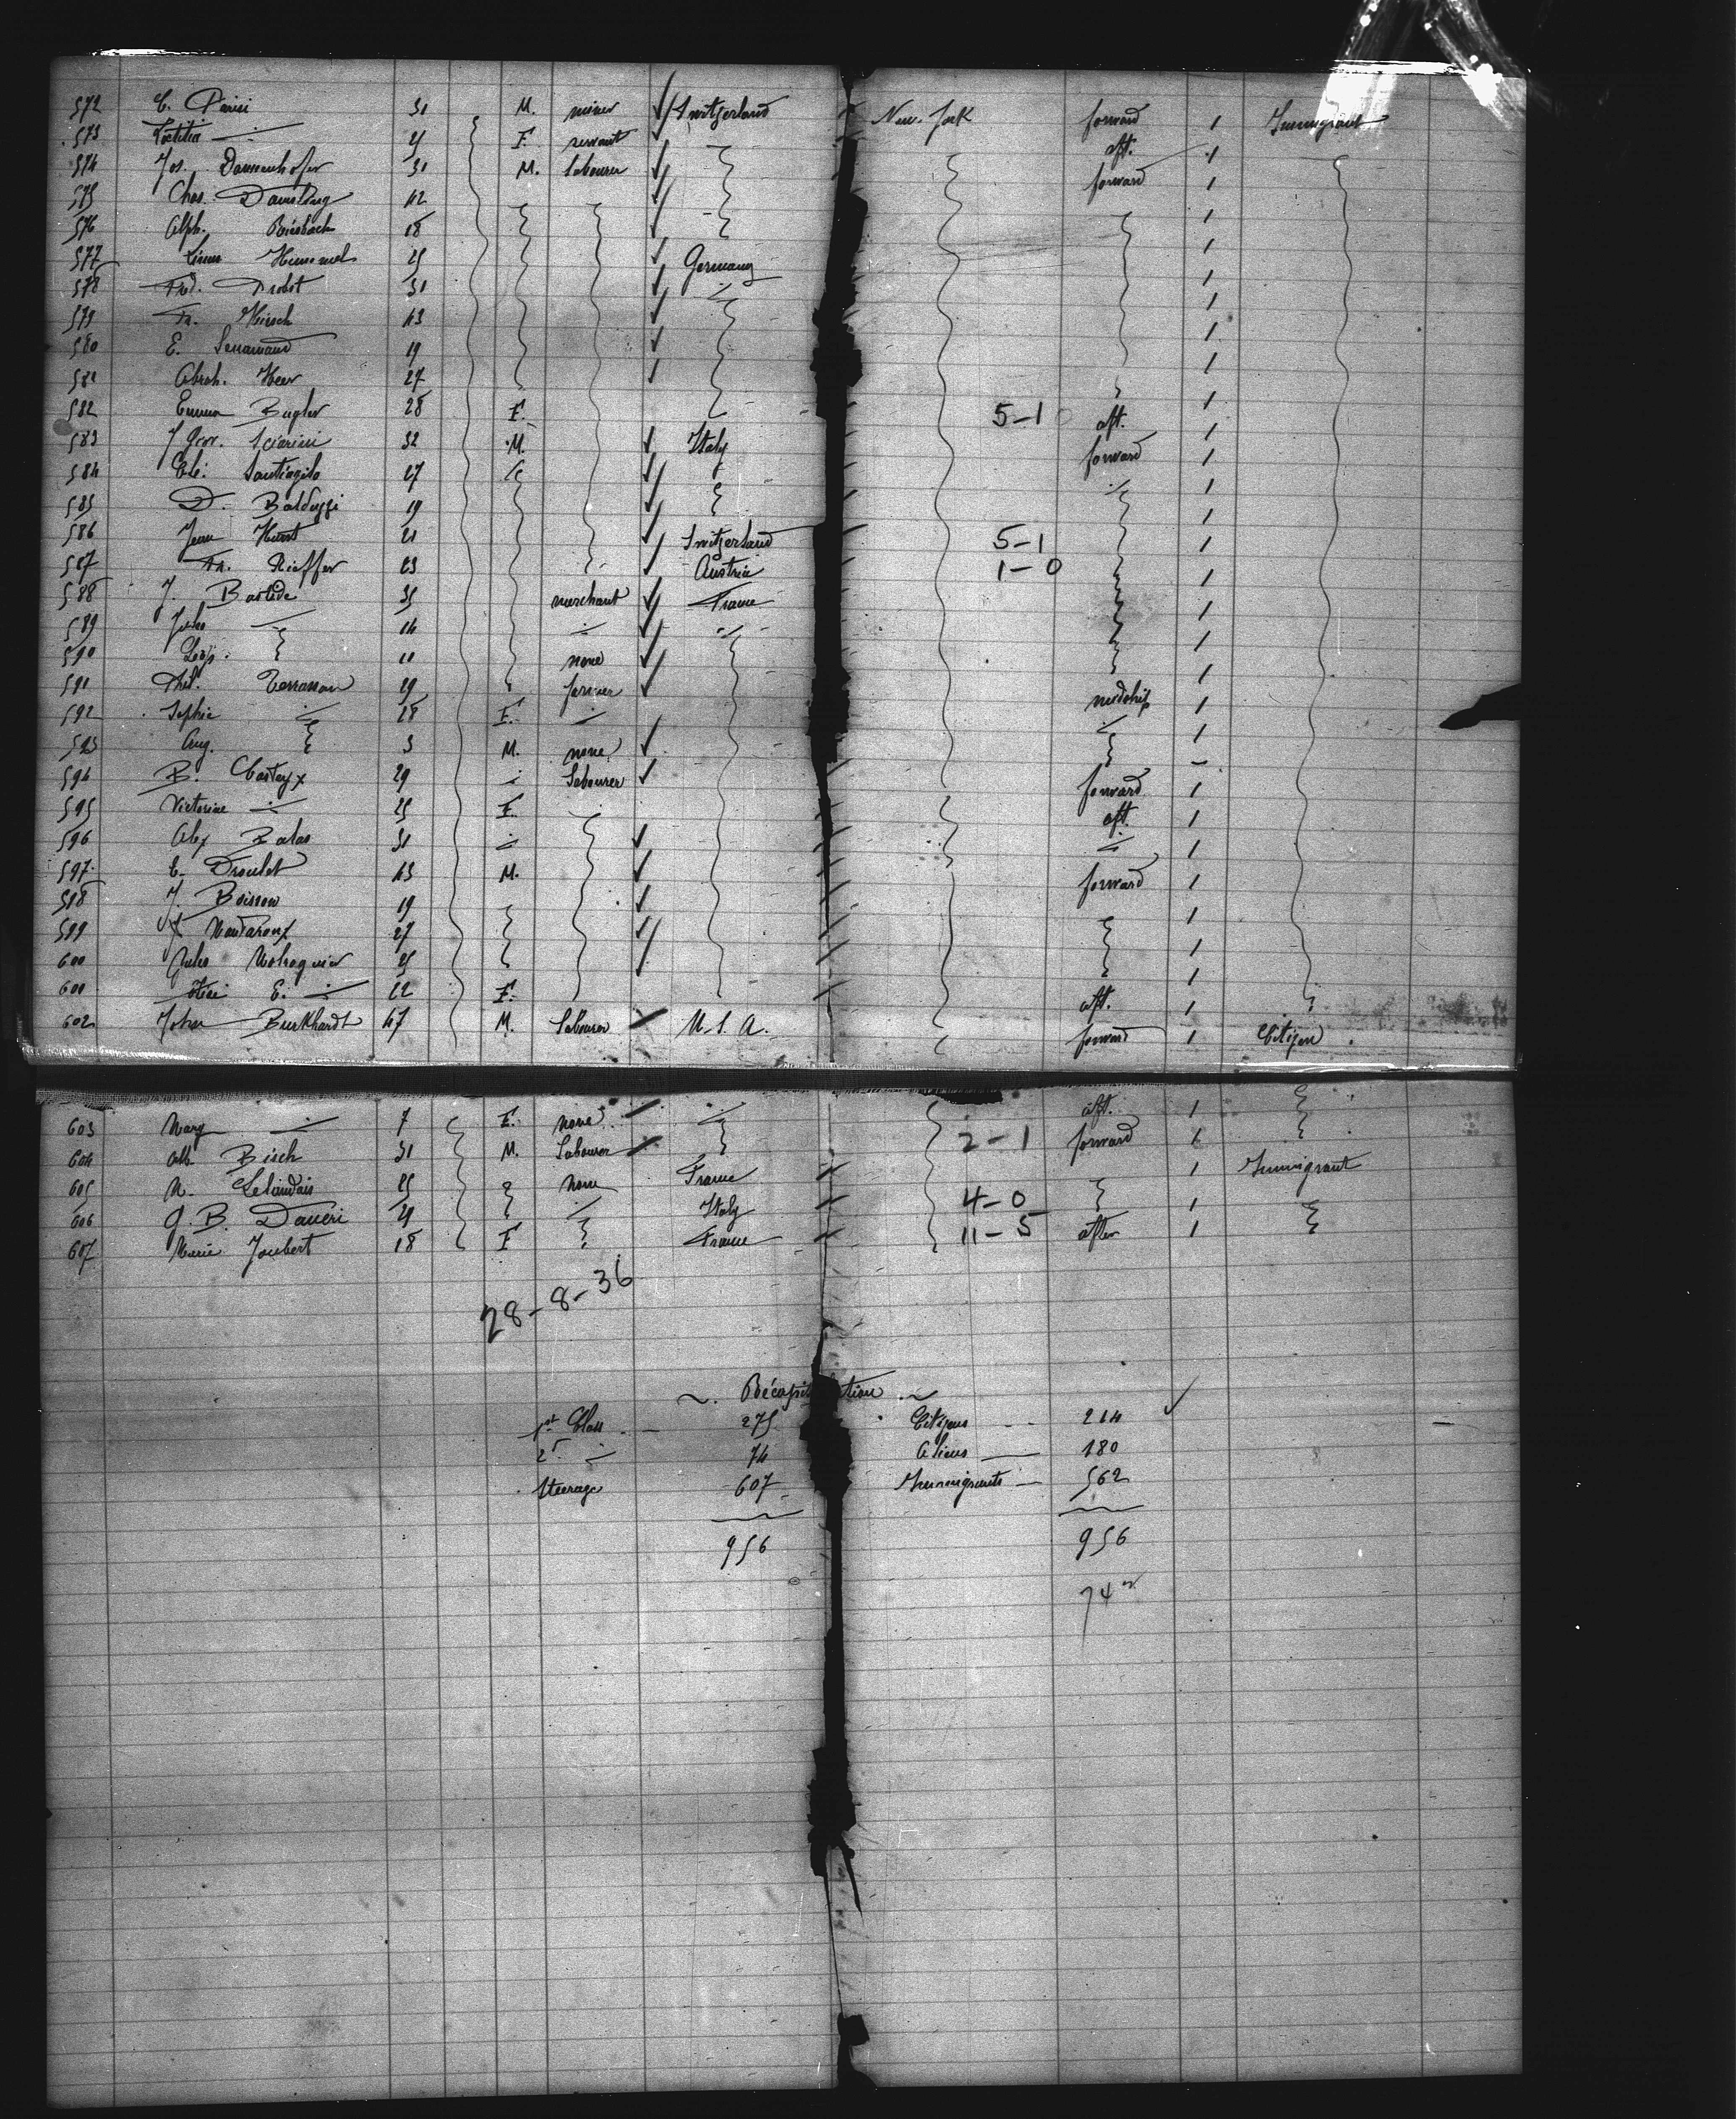 572 C. Parisi 31 M. miner Switzerland New-York forward 1 Immigrant
573 Laetitia 21 F. servant aft. 1
574 Jos. 31 M. labourer forward 1
575 Chas. 42 1
576 Alph. 18 1
577 Hummel 25 Germany 1
578 Fréd. Probst 31 1
579 Fr. Hirsch 43 1
580 E. 19 1
581 Abrah. Heer 27 1
582 Emma Bugler 28 F. 5-1 aft. 1
583 Sciarini 32 M. Italy forward 1
584 27 1
585 D. Balduzzi 19 1
586 Jean Hunt 21 Switzerland 5-1 1
587 Fr. 23 Austria 1-0 1
588 J. Bastide 35 merchant France 1
589 Jules 14 1
590 10 none 1
591 Terrasson 29 farmer midship 1
592 Sophie 28 F. 1
593 Aug. 3 M. none
594 B. 29 labourer forward 1
595 Victorine 25 F. aft. 1
596 Alex Balas 31 1
597 E. Droulet 43 M. forward 1
598 J. Boisson 19 1
599 27 1
600 Jules 25 1
601 E. 22 F. aft. 1
602 John Burkhardt 47 M. labourer U.S.A. forward 1 Citizen
603 Mary 7 F. none aft. 1
604 Alb. Bisch 31 M. labourer 2-1 forward 1
605 N. Lelandais 25 none France 1 Immigrant
606 G. B. Daveri 21 Italy 4-0 1
607 Marie Joubert 18 F France 11-5 after 1
28-8-36
Récapitulation
1st Class 275 Citizens 214
2d 74 Aliens 180
Steerage 607 Immigrants 562
956 956
74